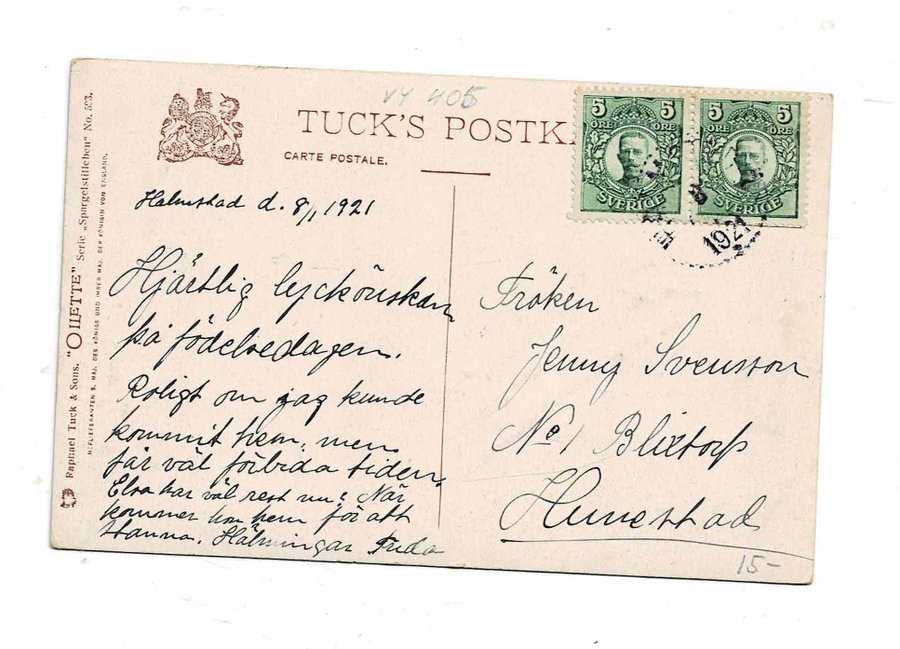 VY 405
TUCK'S POSTK
CARTE POSTALE.
Raphael Tuck & Sons. "OILETTE" Serie „Spargelstilleben" No. 593.
HOFLIEFERANTEN S. MAJ. DES KÖNIGS UND IHRER MAJ. DER KÖNIGIN VON ENGLAND.
5 5
ÖRE ÖRE
SVERIGE
5 5
ÖRE ÖRE
SVERIGE
8
1921
Halmstad d. 8/1 1921
Hjärtlig lyckönskan
på födelsedagen.
Roligt om jag kunde
kommit hem, men
får väl förbida tiden.
Elsa har väl rest nu? När
kommer hon hem för att
stanna. Hälsningar Frida
Fröken
Jenny Svensson
No 1 Blixtorp
Hunestad
15-